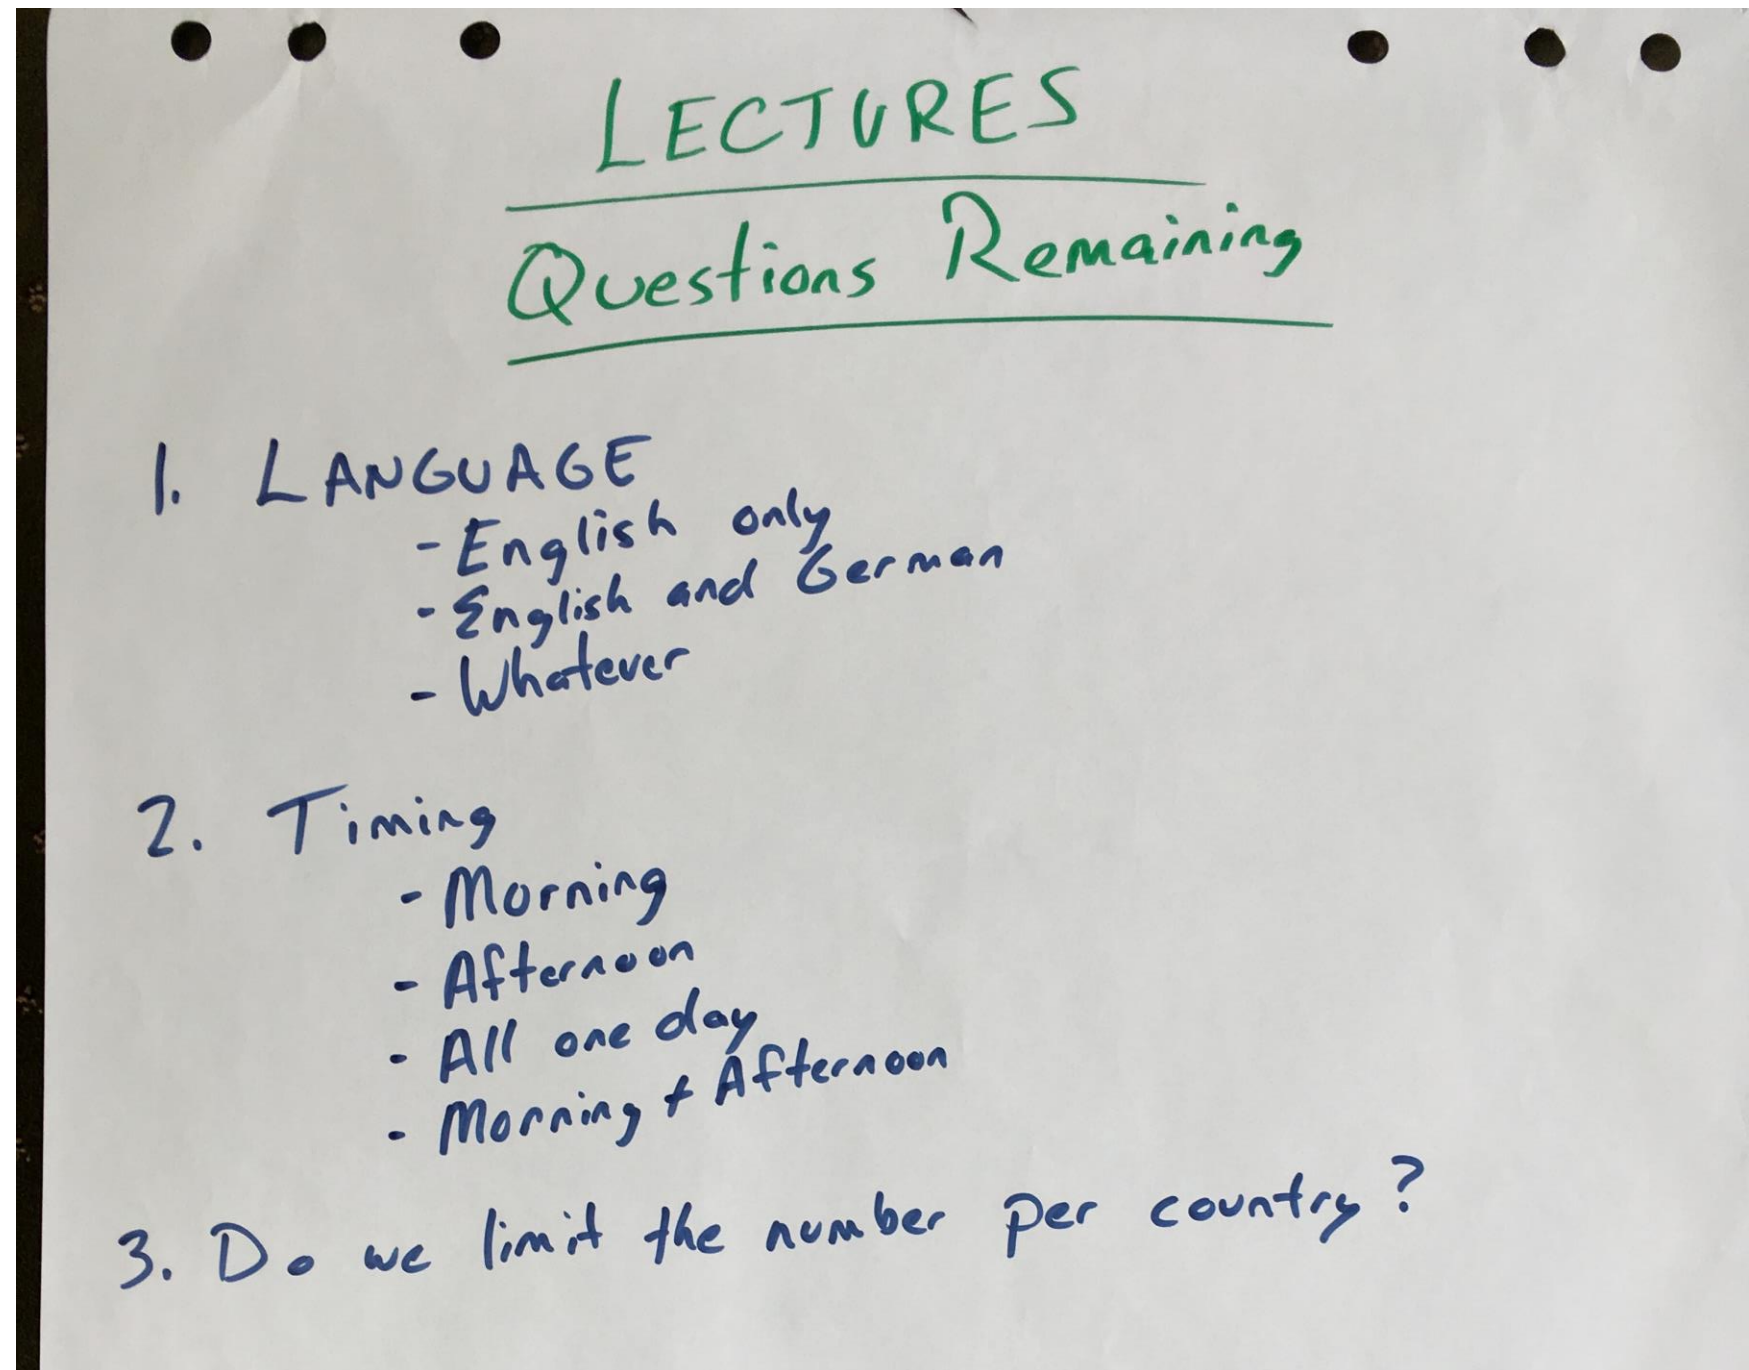 LECTURES
Questions Remaining
1. LANGUAGE
- English only
- English and German
- Whatever
2. Timing
- Morning
- Afternoon
- All one day
- Morning + Afternoon
3. Do we limit the number per country?